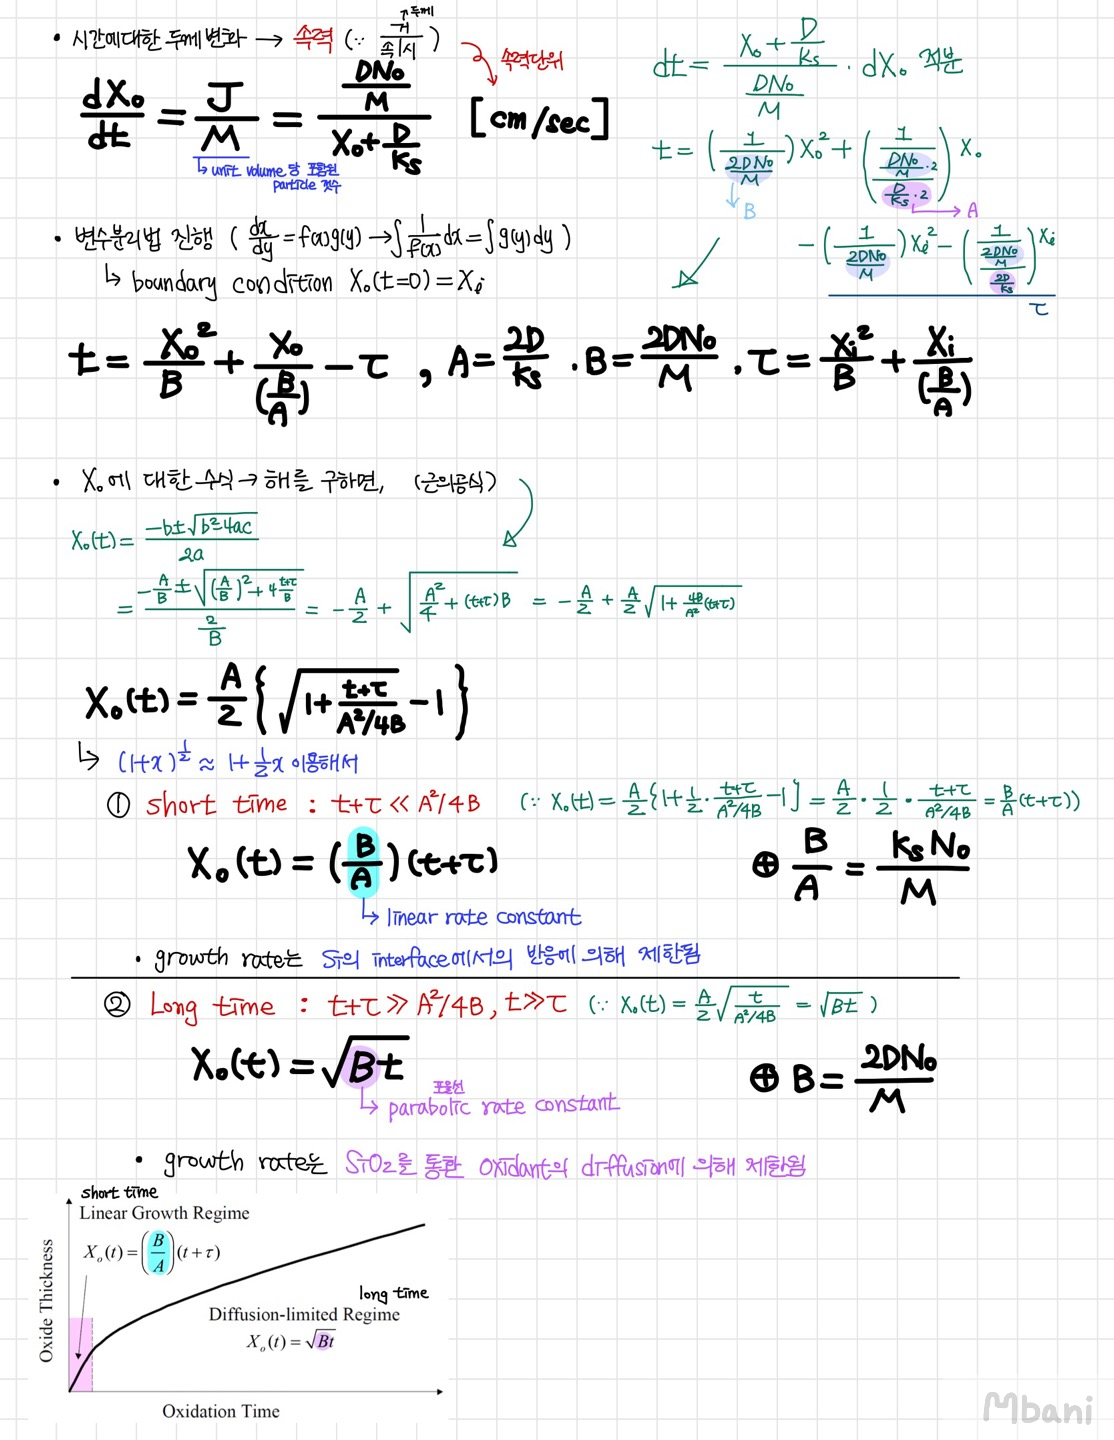 • 시간에대한 두께변화 → 속력 (∵ 거/속|시) ↗두께
속력단위
dX₀/dt = J/M = (DN₀/M)/(X₀+D/ks) [cm/sec]
↳ unit volume 당 포함된 particle 갯수
dt = (X₀+D/ks)/(DN₀/M) · dX₀ 적분
t = (1/(2DN₀/M))X₀² + (1/((DN₀/M·2)/(D/ks·2)))X₀
B
→ A
-(1/(2DN₀/M))Xi² - (1/((2DN₀/M)/(2D/ks)))Xi
τ
• 변수분리법 진행 (dx/dy = f(x)g(y) → ∫1/f(x) dx = ∫g(y)dy)
↳ boundary condition X₀(t=0) = Xi
t = X₀²/B + X₀/(B/A) - τ , A = 2D/ks . B = 2DN₀/M . τ = Xi²/B + Xi/(B/A)
• X₀에 대한 수식 → 해를 구하면, (근의공식)
X₀(t) = (-b±√(b²-4ac))/2a
= (-A/B ± √((A/B)²+4(t+τ)/B))/(2/B) = -A/2 + √(A²/4+(t+τ)B) = -A/2 + A/2√(1+4B/A²(t+τ))
X₀(t) = A/2{√(1+(t+τ)/(A²/4B)) -1}
↳ (1+x)^½ ≈ 1+½x 이용해서
① short time : t+τ ≪ A²/4B (∵ X₀(t) = A/2{1+1/2·(t+τ)/(A²/4B) -1} = A/2·1/2·(t+τ)/(A²/4B) = B/A(t+τ))
X₀(t) = (B/A)(t+τ) ⊕ B/A = ksN₀/M
↳ linear rate constant
• growth rate는 Si의 interface에서의 반응에 의해 제한됨
② Long time : t+τ ≫ A²/4B, t≫τ (∵ X₀(t) = A/2√(t/(A²/4B)) = √Bt )
X₀(t) = √Bt ⊕ B = 2DN₀/M
포물선
↳ parabolic rate constant
• growth rate는 SiO2를 통한 oxidant의 diffusion에 의해 제한됨
short time
Linear Growth Regime
X₀(t) = (B/A)(t+τ)
long time
Diffusion-limited Regime
X₀(t) = √Bt
Oxide Thickness
Oxidation Time
Mbani